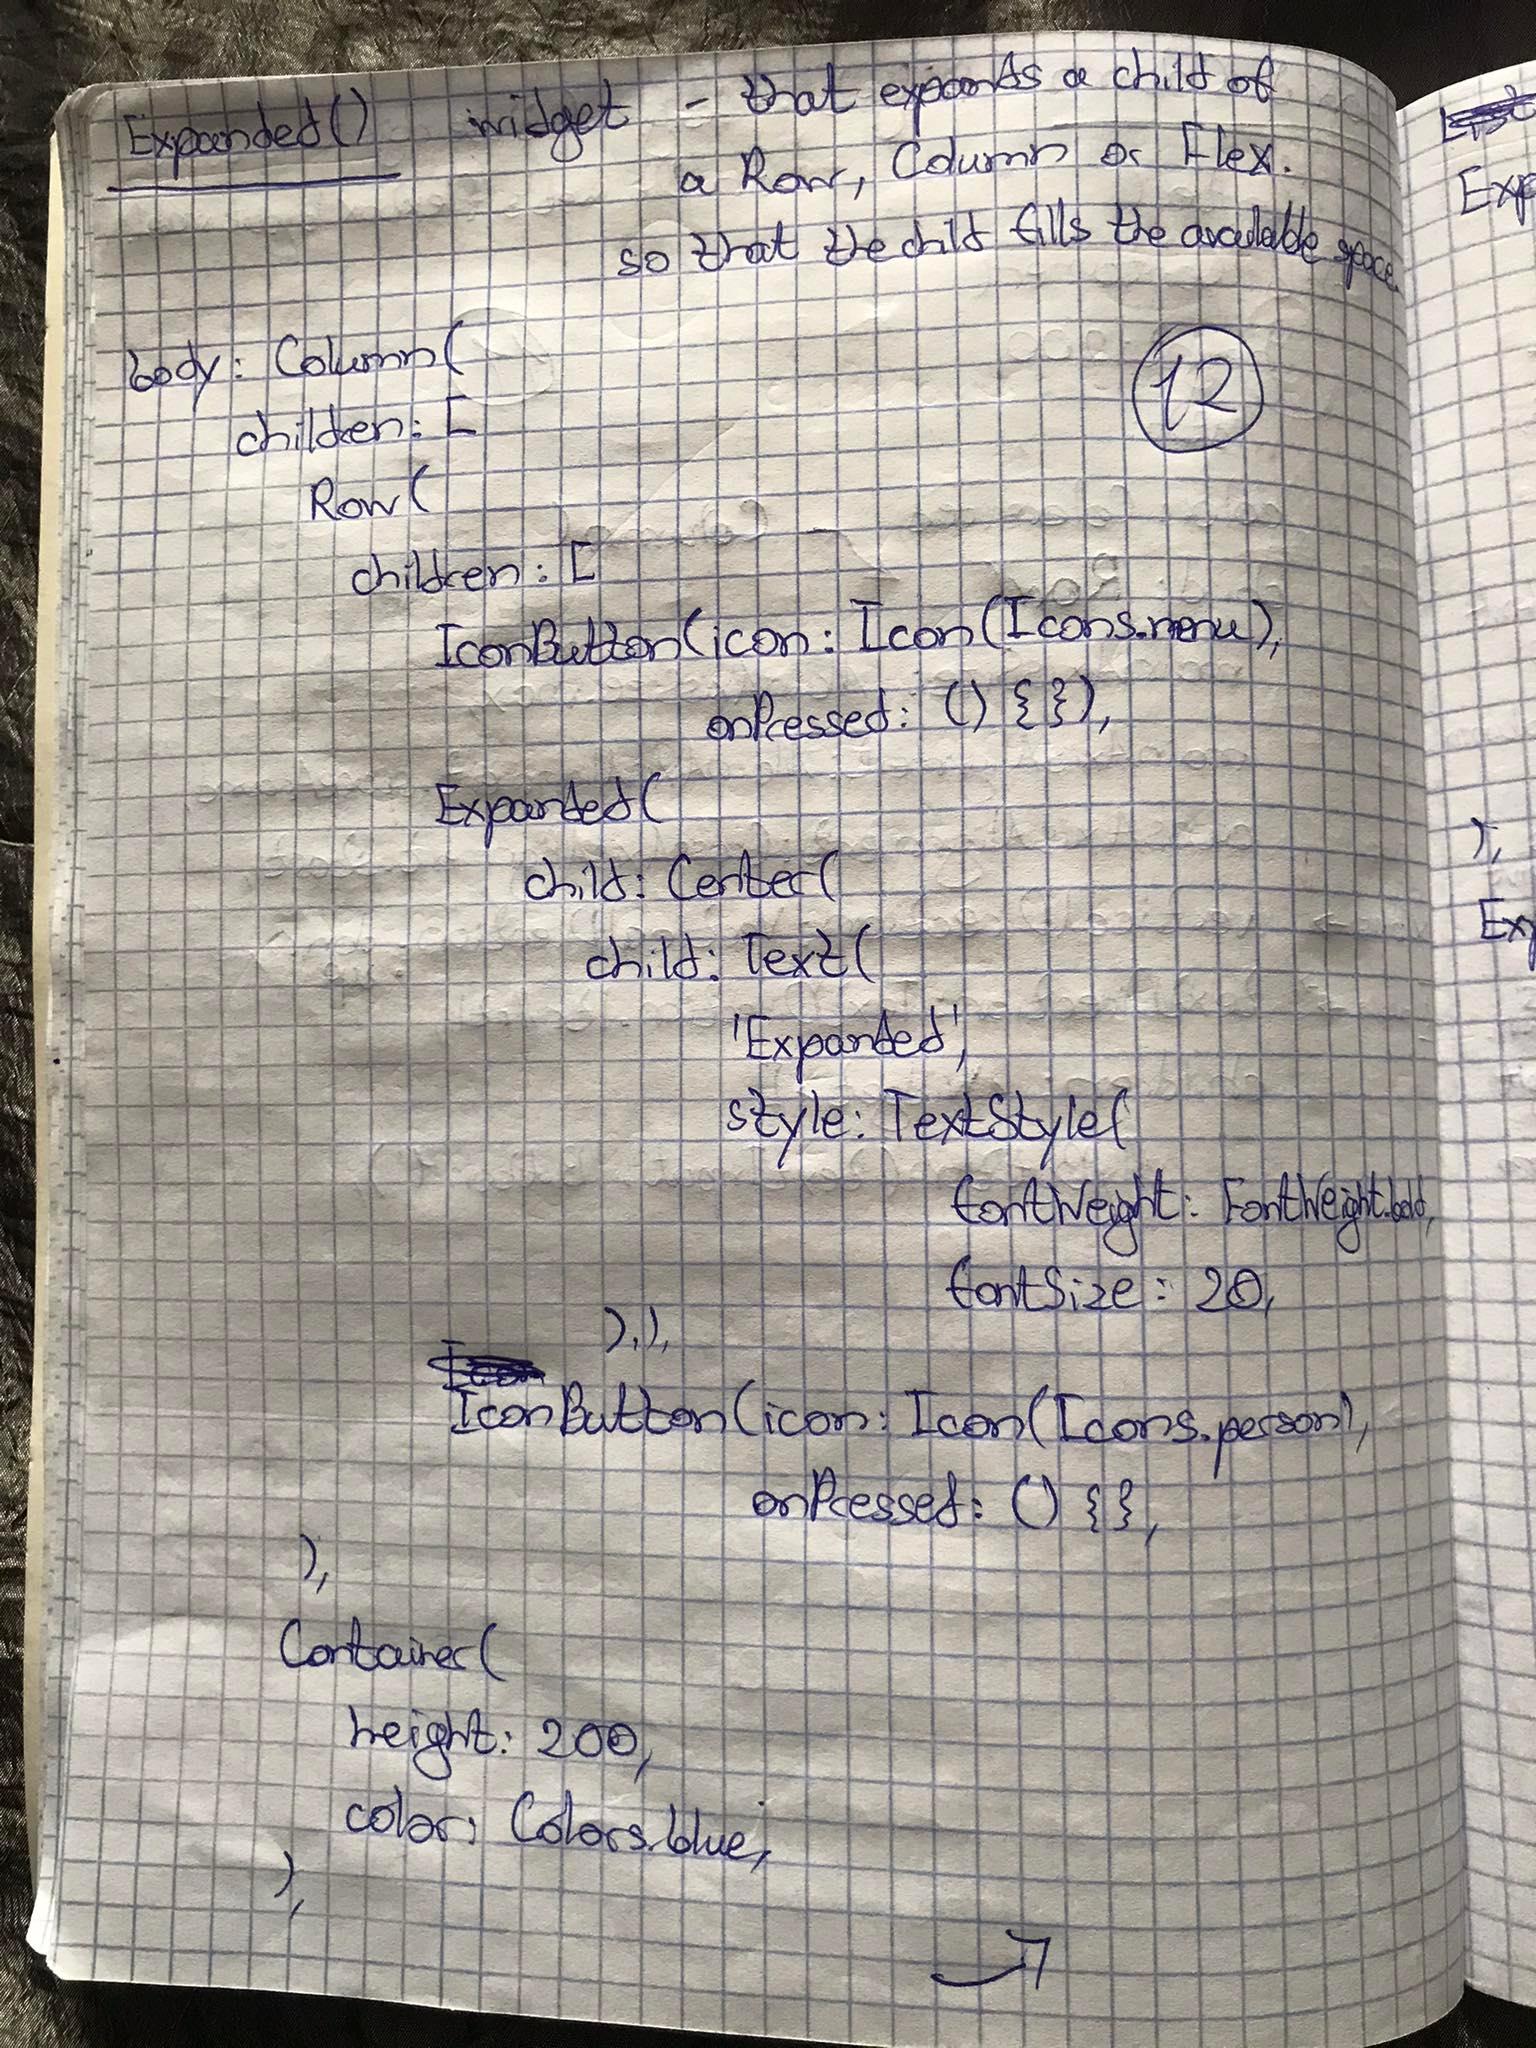 Expanded() widget - that expands a child of
a Row, Column or Flex.
so that the child fills the available space.
12
body: Column(
children: [
Row(
children: [
IconButton(icon: Icon(Icons.menu),
onPressed: () {}),
Expanded(
child: Center(
child: Text(
'Expanded',
style: TextStyle(
fontWeight: FontWeight.bold,
fontSize: 20,
),),
IconButton(icon: Icon(Icons.person),
onPressed: () {},
),
Container(
height: 200,
color: Colors.blue,
),
),